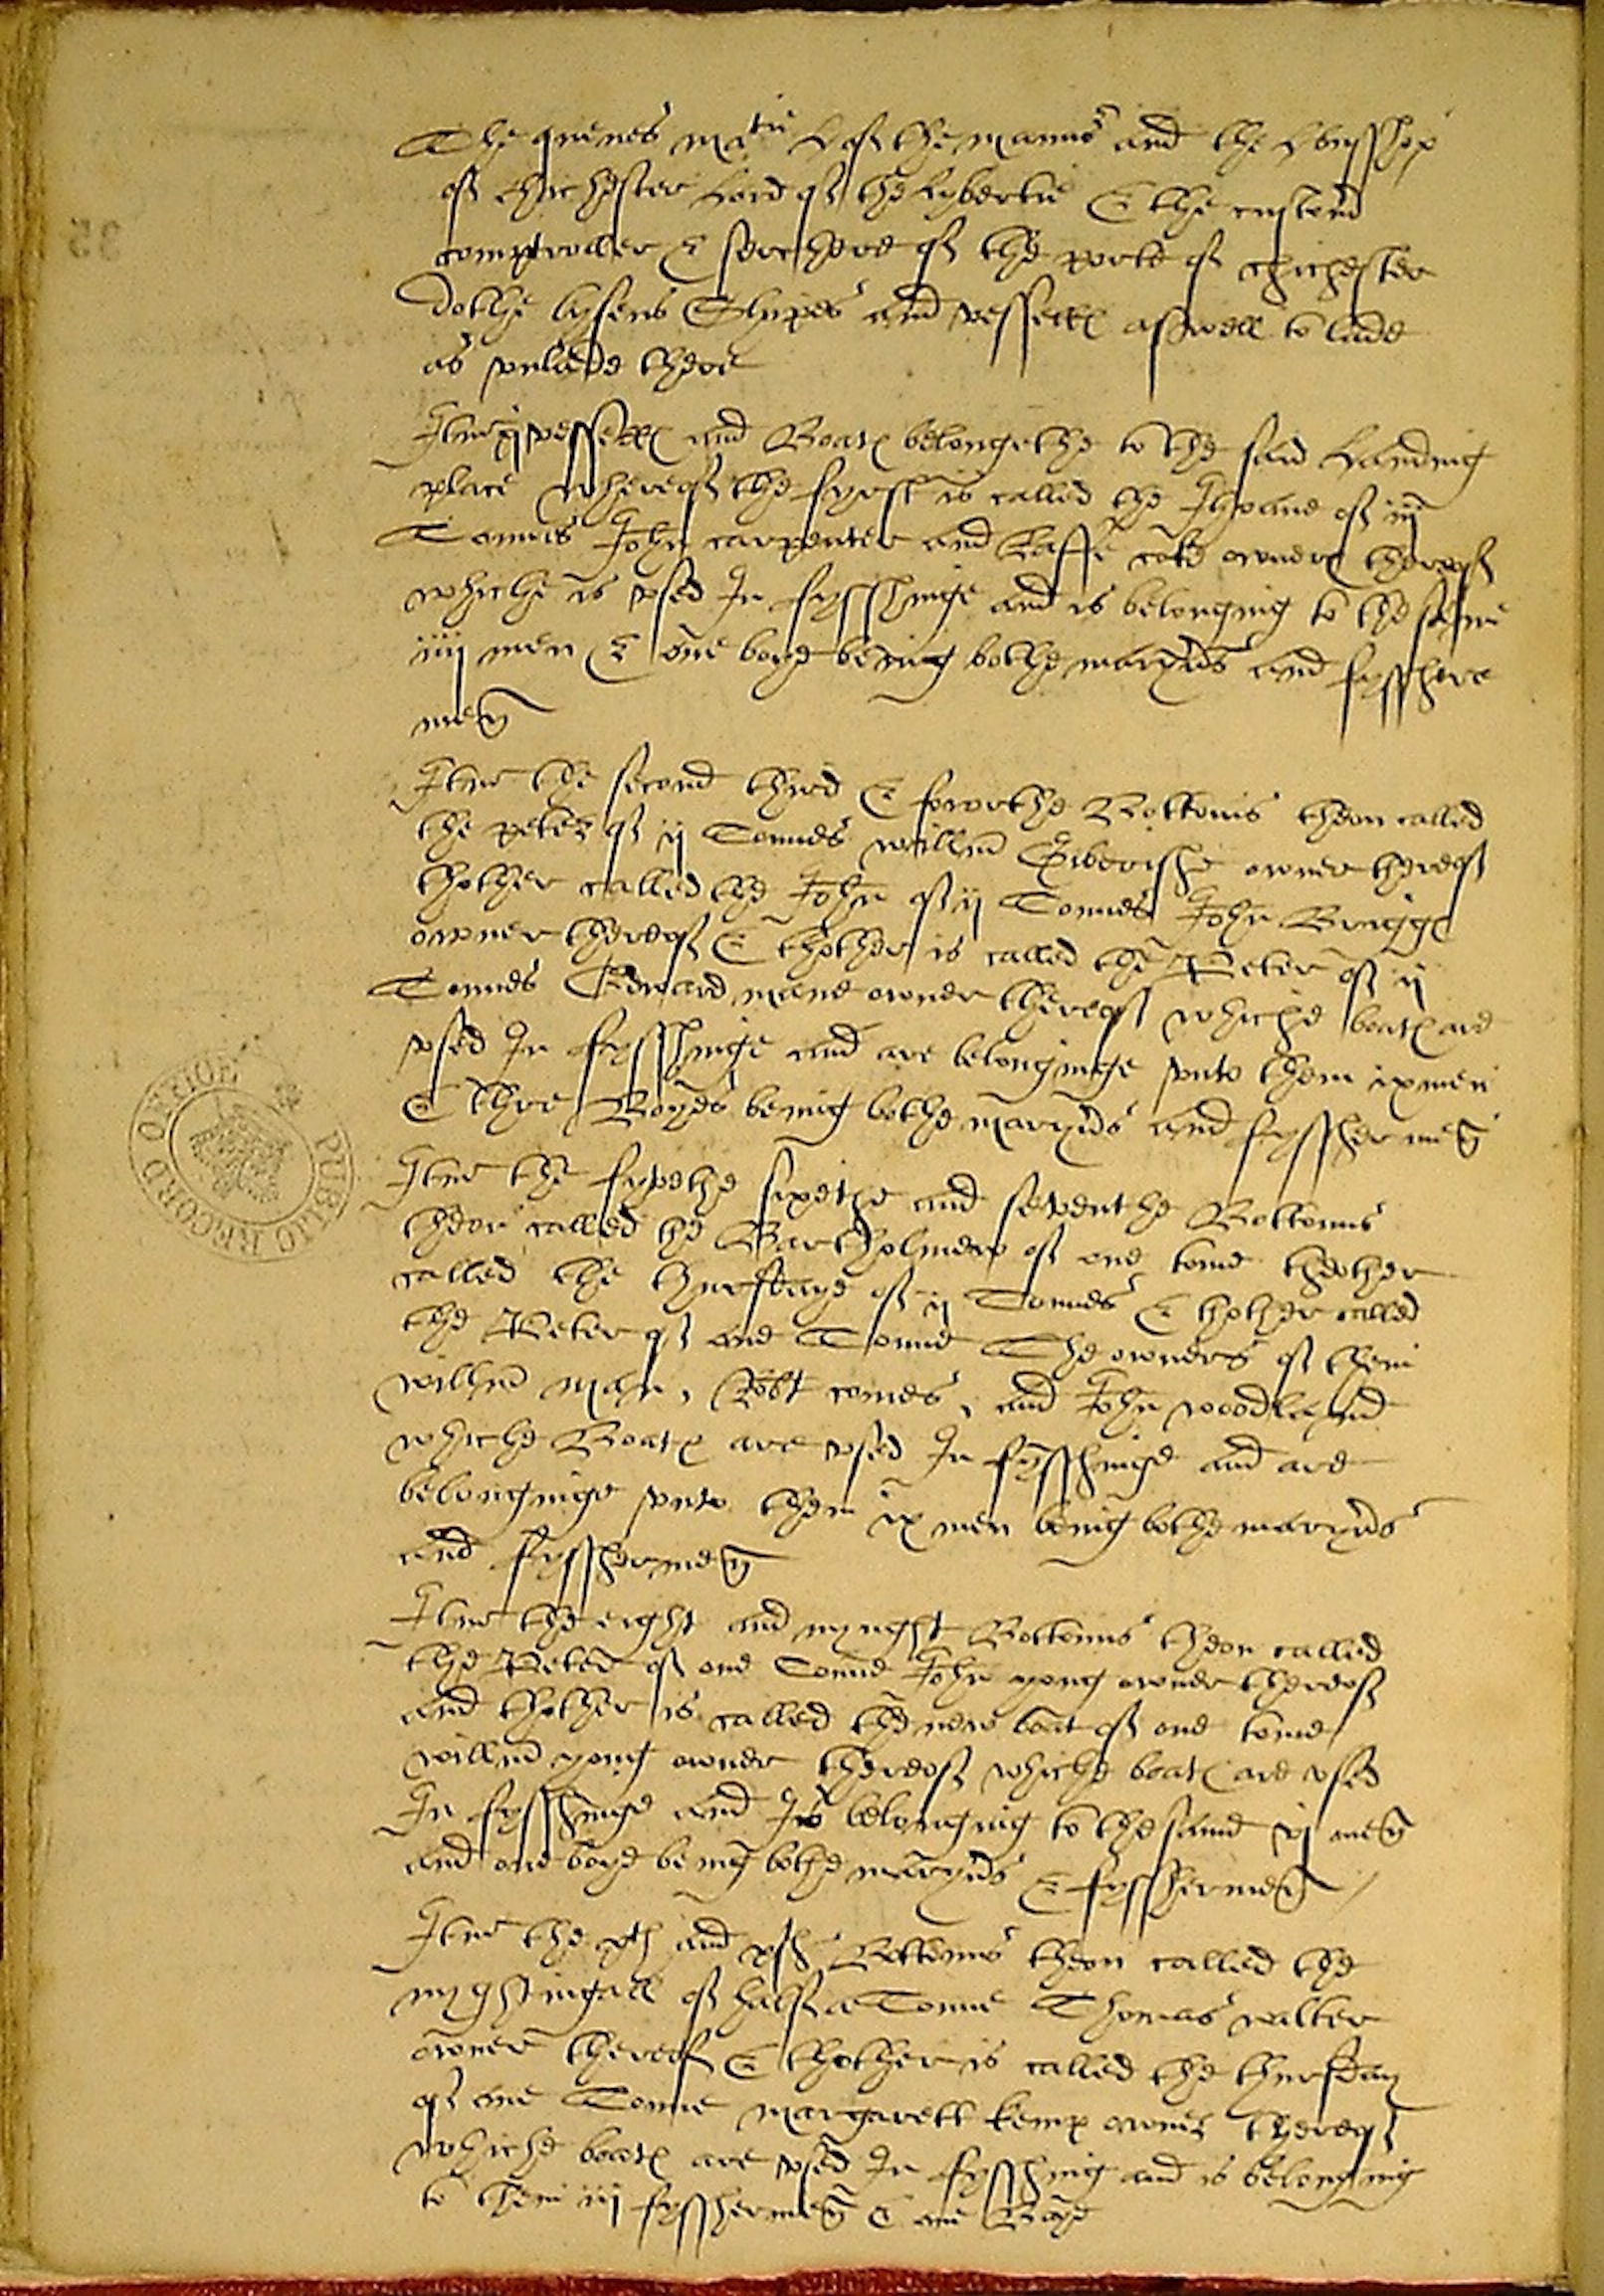 The quenes matie L of the mannor and the L bysshop
of Chichester Lord of the lybertie & the custom
comptroller & serchere of the porte of chichester
dothe lysens Shipes and vessells aswell to lade
as vnlade there
Itm xj vessells and Boates belongethe to the said Landing
place whereof the fyrst is called the of iij
Tonnes John carpenter and Raffe cote owners thereof
whiche is vsed In fysshinge and is belonging to the same
iiij men & one boye being bothe maryners and fysshere
men
Itm the second third & foworthe Bottoms theon called
the peter of ij Tonnes willm owner thereof
thother called the John of ij Tonnes John Brigges
owner thereof & thother is called the Peter of ij
Tonnes Edward mane owner thereof whiche boates are
vsed In fysshinge and are belonginge vnto them ix men
& thre Boyes being bothe maryners and fysshermen
Itm the fyvethe sixethe and seventhe Bottoms
theon called the Bartholmew of one tonne theother
called the thursdaye of ij Tonnes & thother called
the Peter of one Tonne The owners of them
willm man, Robt comes, and John woodland
whiche Boates are vsed In fysshinge and are
belonginge vnto them ix men being bothe maryners
and fysshermen
Itm the eight and nyneght Bottoms theon called
the Peter of one Tonne John yong owner thereof
and thother is called the new boat of one tonne
willm yong owner thereof whiche boates are vsed
In fysshinge and Is belonging to the same vj men
and one boye being bothe maryners & fysshermen
Itm the xth and xjth Bottoms theon called the
nyghtingall of halfe a Tonne Thomas walter
owner thereof & thother is called the thursday
of one Tonne margarett kemp owner thereof
whiche boates are vsed In fysshing and is belonging
to them iij fysshermen & one Boye
PUBLIC RECORD OFFICE